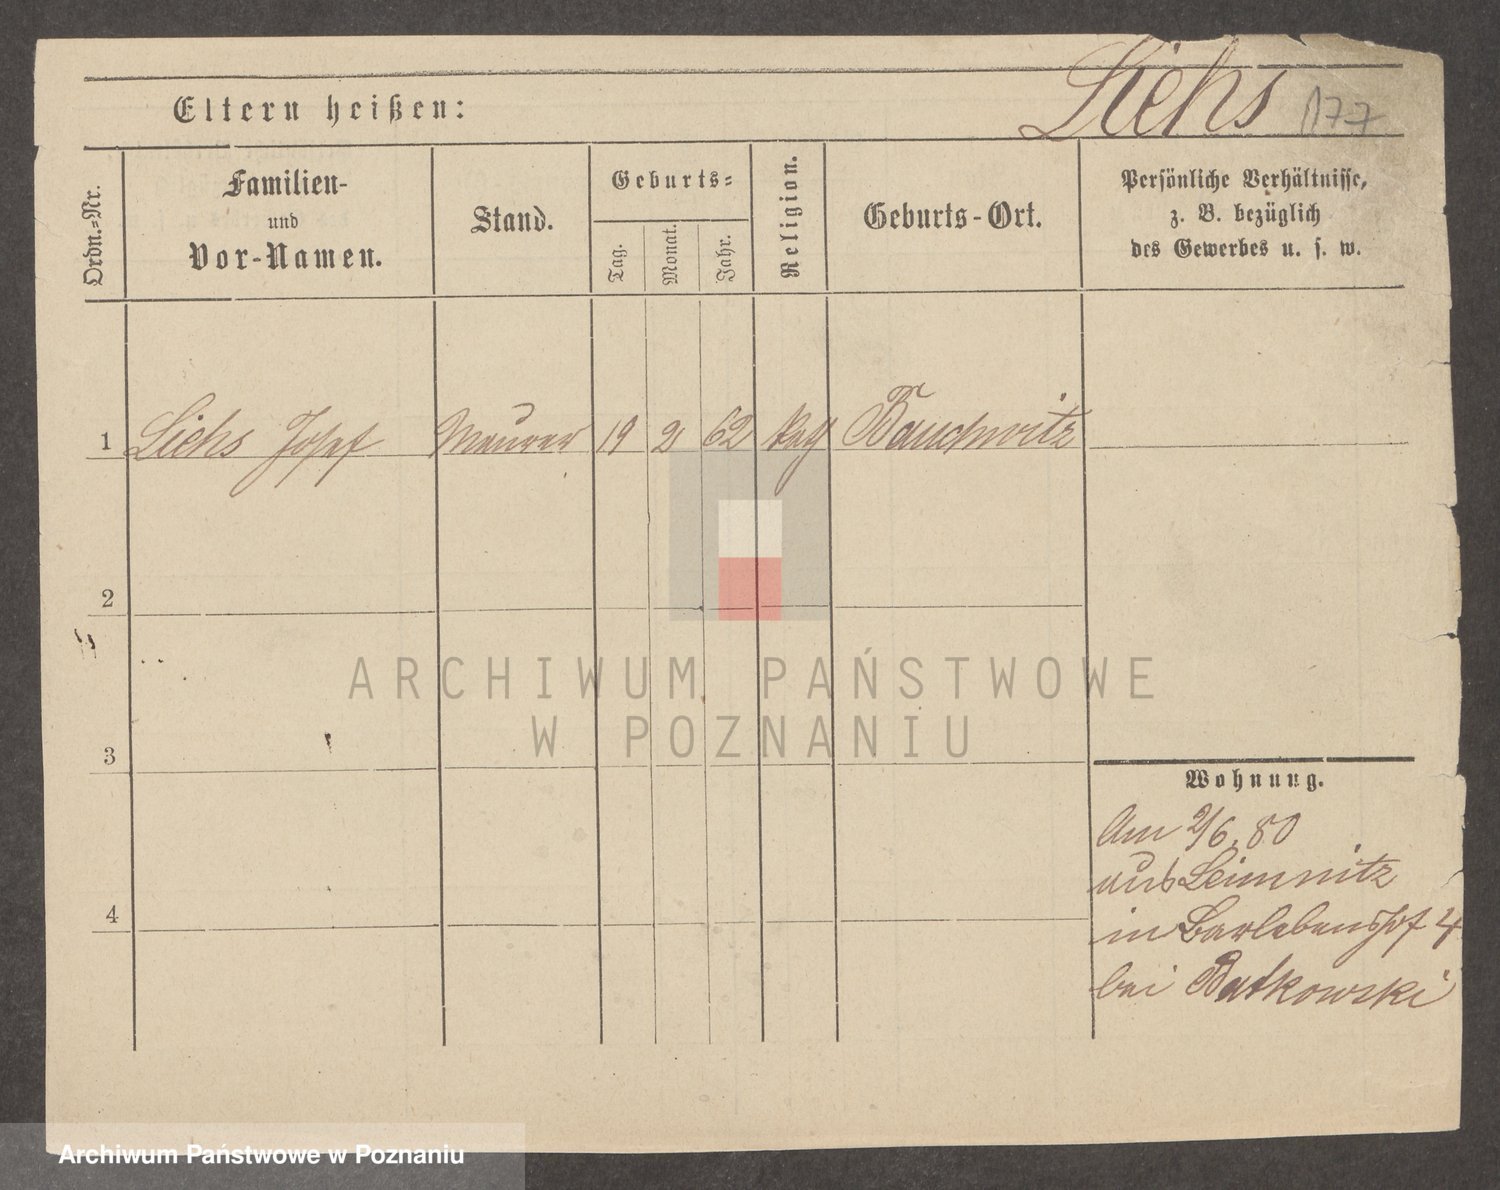 Liehs 177
Eltern heißen:
Ordn.=Nr.
Familien-
und
Vor-Namen.
Stand.
Geburts=
Tag.
Monat.
Jahr.
Religion.
Geburts-Ort.
Persönliche Verhältnisse,
z. B. bezüglich
des Gewerbes u. s. w.
1 Liehs Josef Maurer 19 2 62 kath Bauchwitz
2
3
4
Wohnung.
Am 2/6. 80
aus Leimnitz
in Barlebenshof 4
bei Batkowski
ARCHIWUM PAŃSTWOWE
W POZNANIU
Archiwum Państwowe w Poznaniu